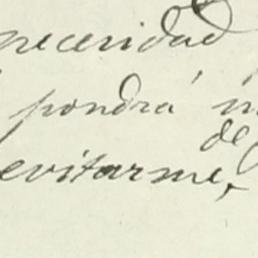 neceridad
pondrá
de
evitarme,